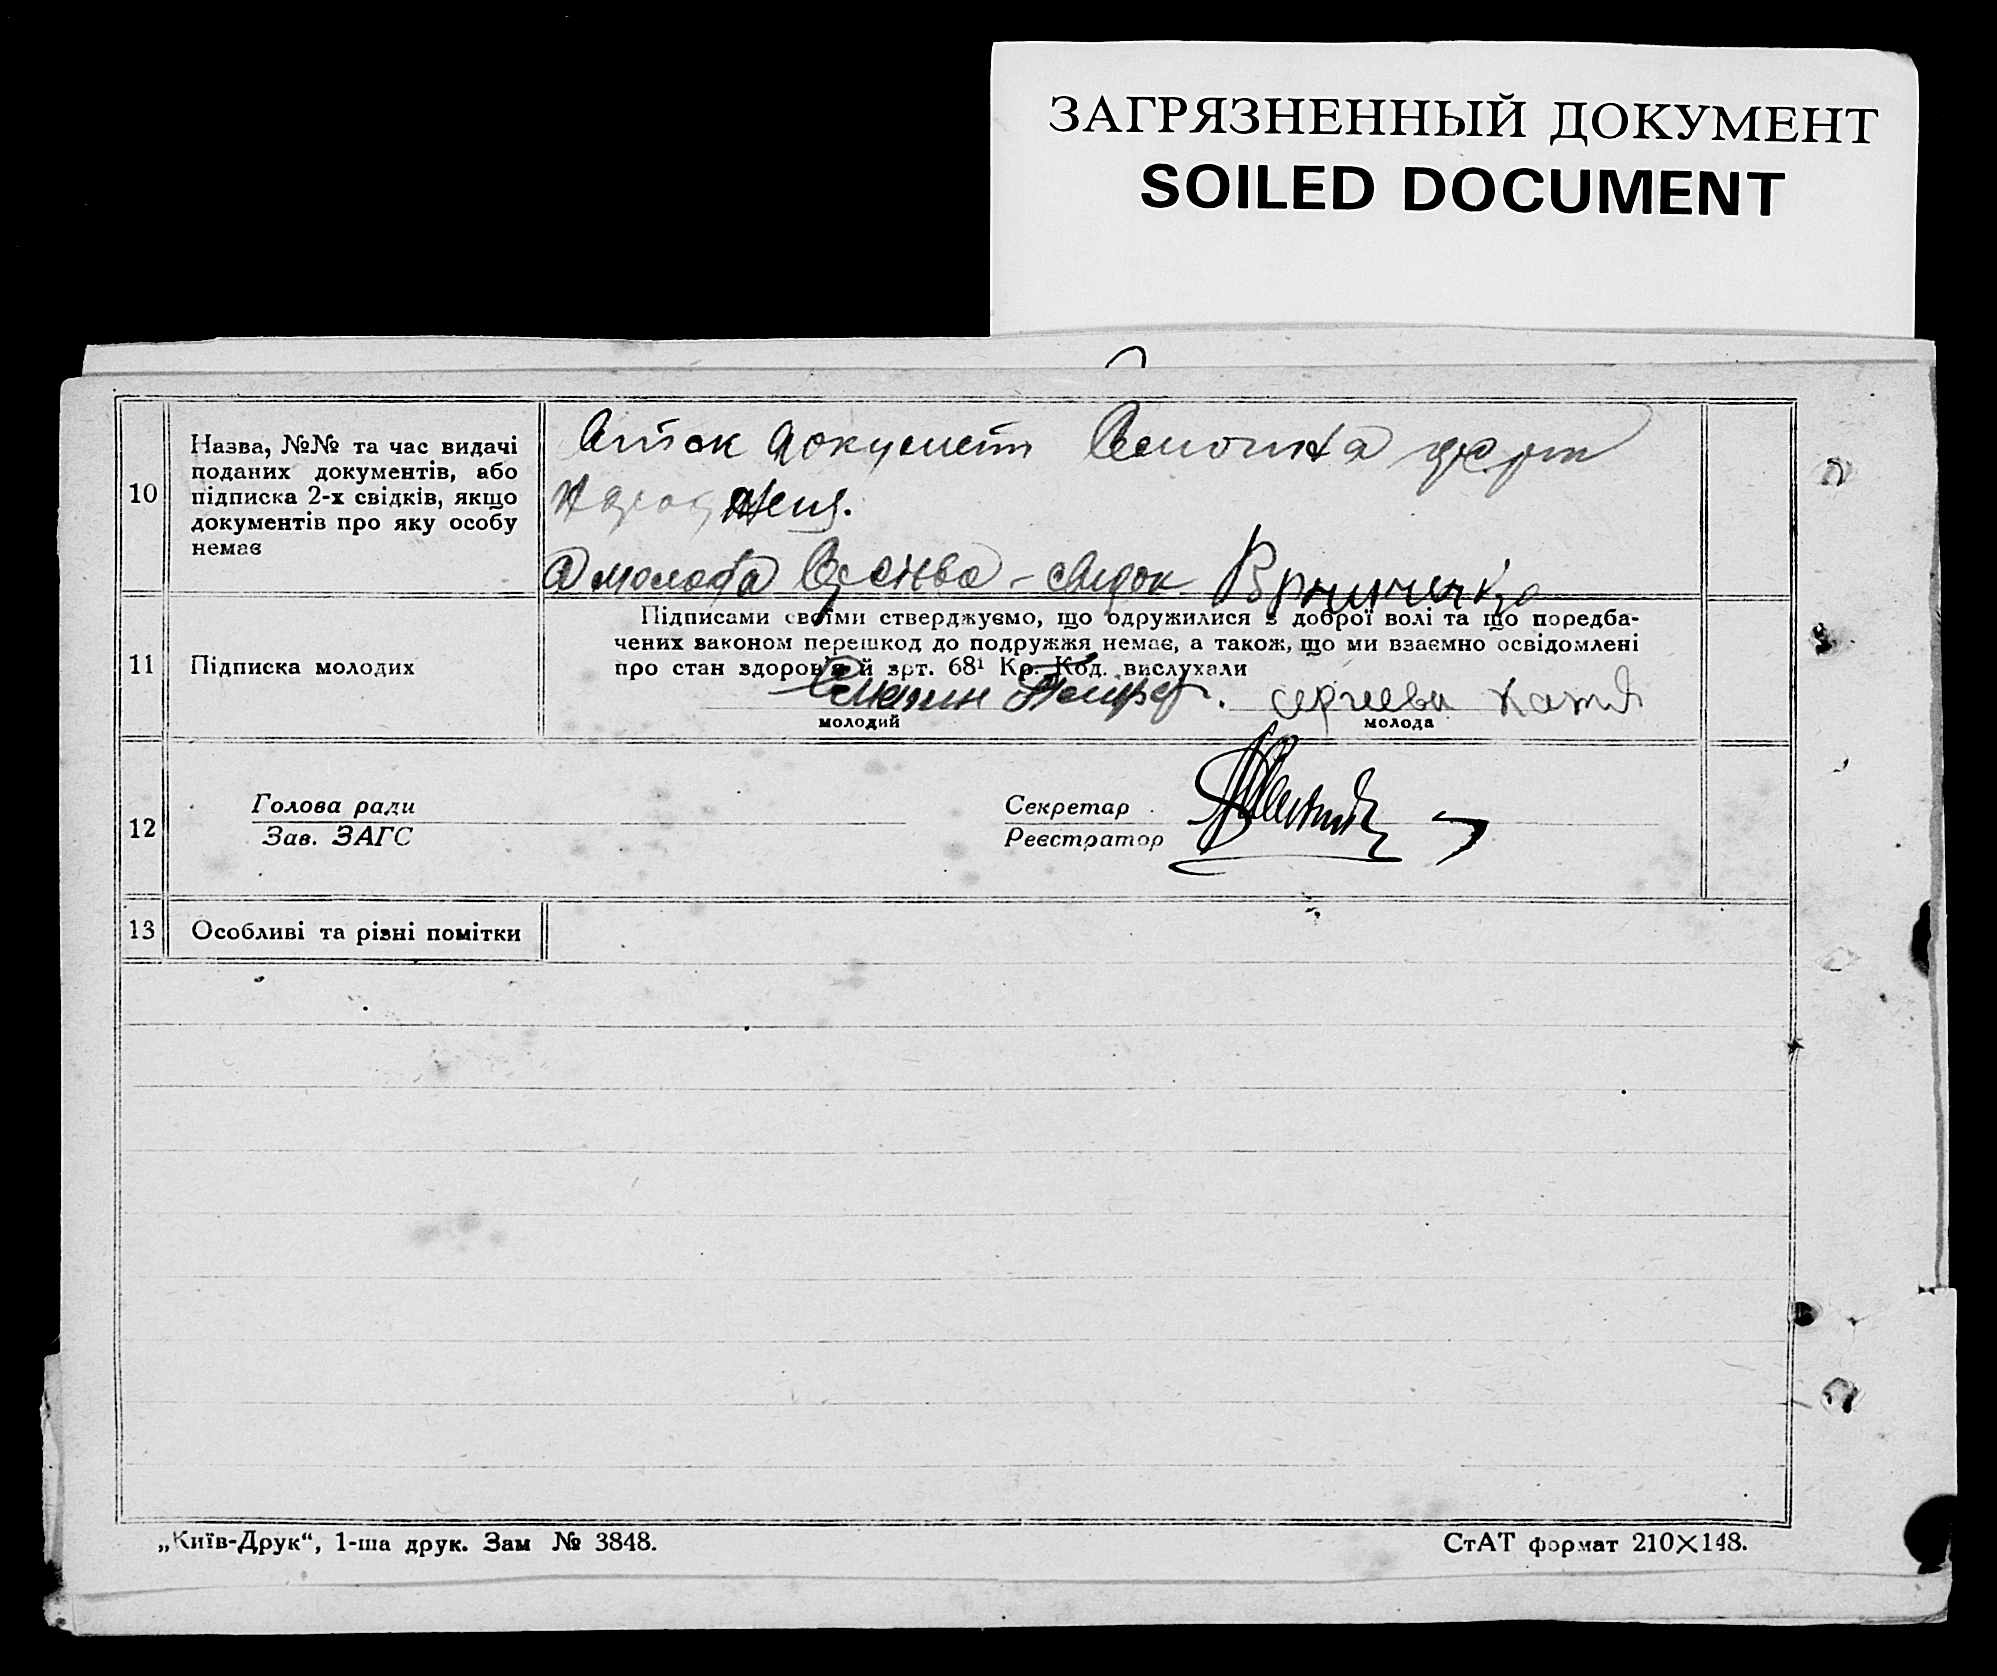 ЗАГРЯЗНЕННЫЙ ДОКУМЕНТ
SOILED DOCUMENT
10
Назва, №№ та час видачі
поданих документів, або
підписка 2-х свідків, якщо
документів про яку особу
немає
документ
молода свідок
11
Підписка молодих
Підписами своїми стверджуємо, що одружилися з доброї волі та що поредба-
чених законом перешкод до подружжя немає, а також, що ми взаємно освідомлені
про стан здоров'я й зрт. 68¹ Кр. Код. вислухали
сергеева Катя
молодий
молода
12
Голова ради
Зав. ЗАГС
Секретар
Реєстратор
13
Особливі та різні помітки
„Київ-Друк“, 1-ша друк. Зам № 3848.
СтАТ формат 210×148.